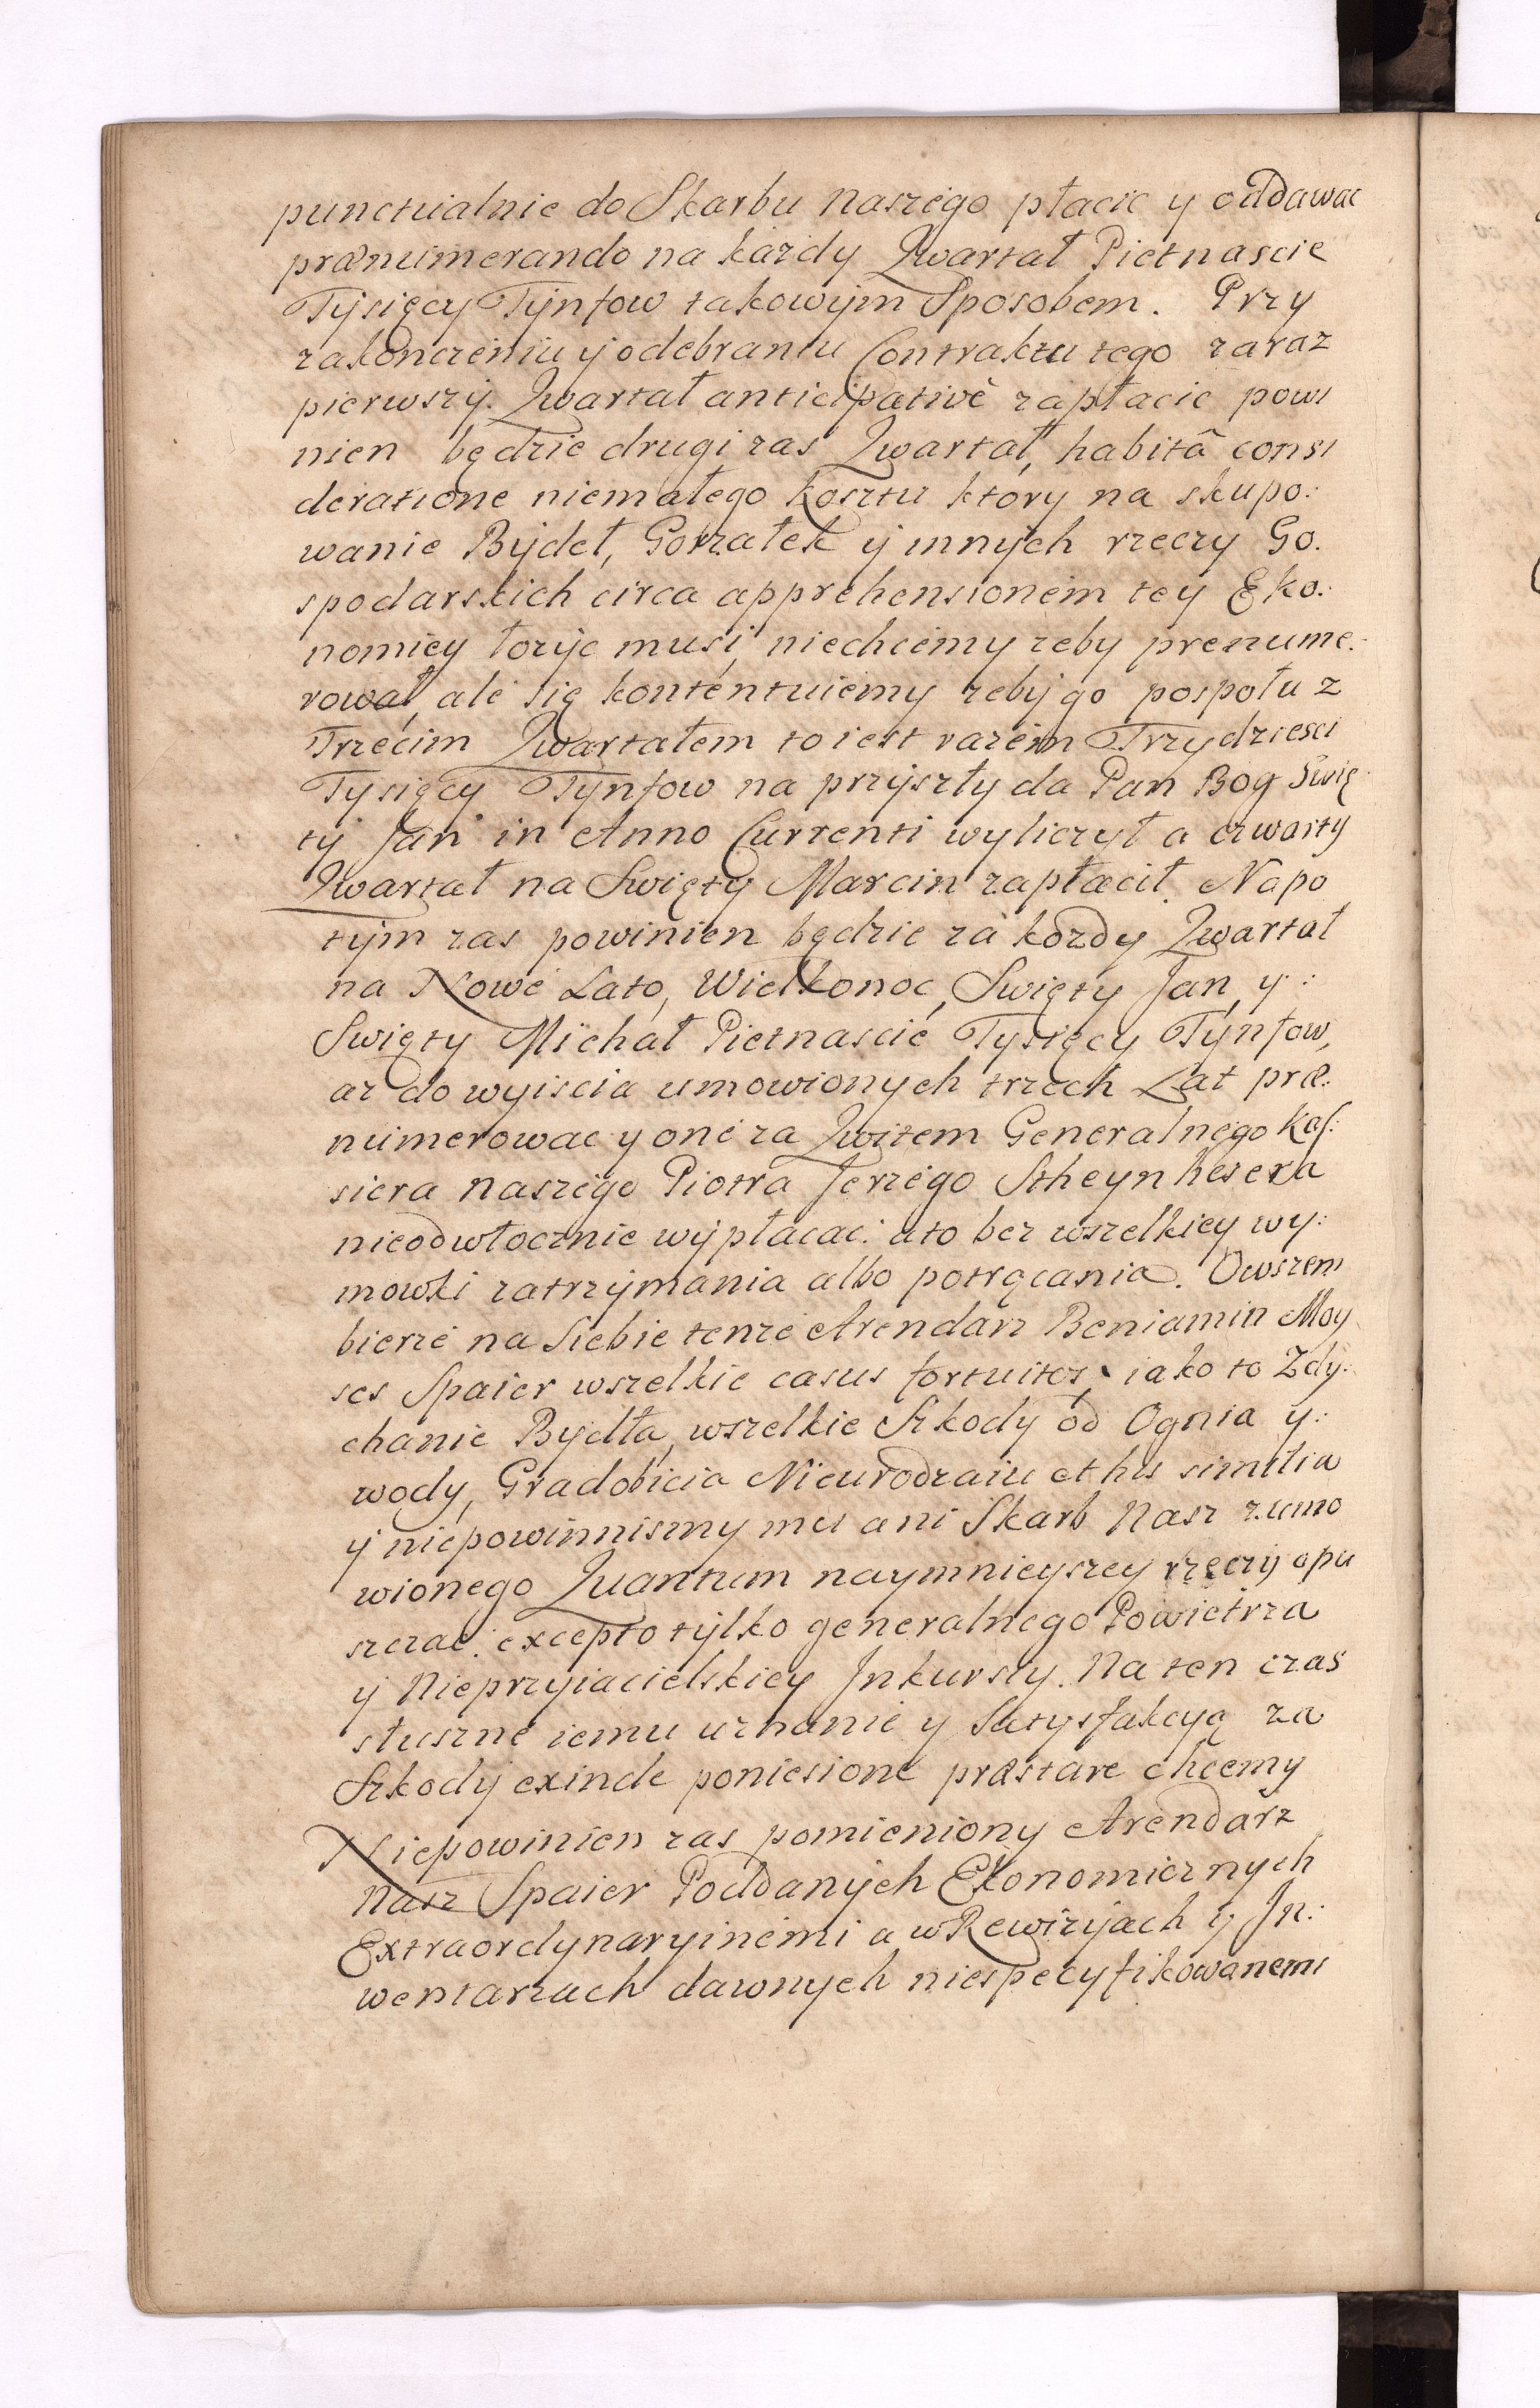 punctualnie do Skarbu naszego płacic y oddawac
prænumerando na kazdy Qwartał Pietnascie
Tysięcy Tynfow takowym Sposobem. Przy
zakonczeniu y odebraniu Contraktu tego zaraz
pierwszy Qwartał anticipativè zapłacic powi
nien będzie drugi zas Qwartał, habitâ consi
deratione niemałego kosztu ktory na skupo:
wanie Bydeł, Gorzałek y innych rzeczy Go.
spodarskich circa apprehensionem tey Eko:
nomiey łozyc musi, niechcemy zeby prenume:
rował, ale się kontentuiemy zeby go pospołu z
Trzecim Qwartałem to iest razem Trzydziesci
Tysięcy Tynfow na przyszły da Pan Bog Swię
ty Jan in Anno Currenti wyliczył a czwarty
Qwartał na Swięty Marcin zapłacił. Napo
tym zas powinien będzie za kozdy Qwartał
na Nowe Lato, Wielkonoc, Swięty Jan, y:
Swięty Michał Pietnascie Tysięcy Tynfow,
az do wyiscia umowionych trzech Lat præ:
numerowac y one za Qwitem Generalnego Kas:
siera naszego Piotra Jerzego Stheynhesera
nieodwłocznie wypłacac: ato bez wszelkiey wy:
mowki zatrzymania albo potrącania. Owszem
bierze na siebie tenze Arendarz Beniamin Moy
ses Spaier wszelkie casus fortuitos, iako to Zdy:
chanie Bydła, wszelkie Szkody od Ognia y:
wody, Gradobicia Nieurodzaiu et his similia
y niepowinnismy mu ani Skarb Nasz z umo
wionego Quantum naymnieyszey rzeczy opu
szczac: excepto tylko generalnego Powietrza
y Nieprzyiacielskiey Inkursÿ. Na ten czas
słuszne iemu uznanie y Satysfakcyą za
Szkody exinde poniesione præstare chcemy
Niepowinien zas pomieniony Arendarz
Nasz Spaier Poddanych Ekonomicznych
Extraordynaryinemi a w Rewizyjach y In:
wentarzach dawnych niespecyfikowanemi